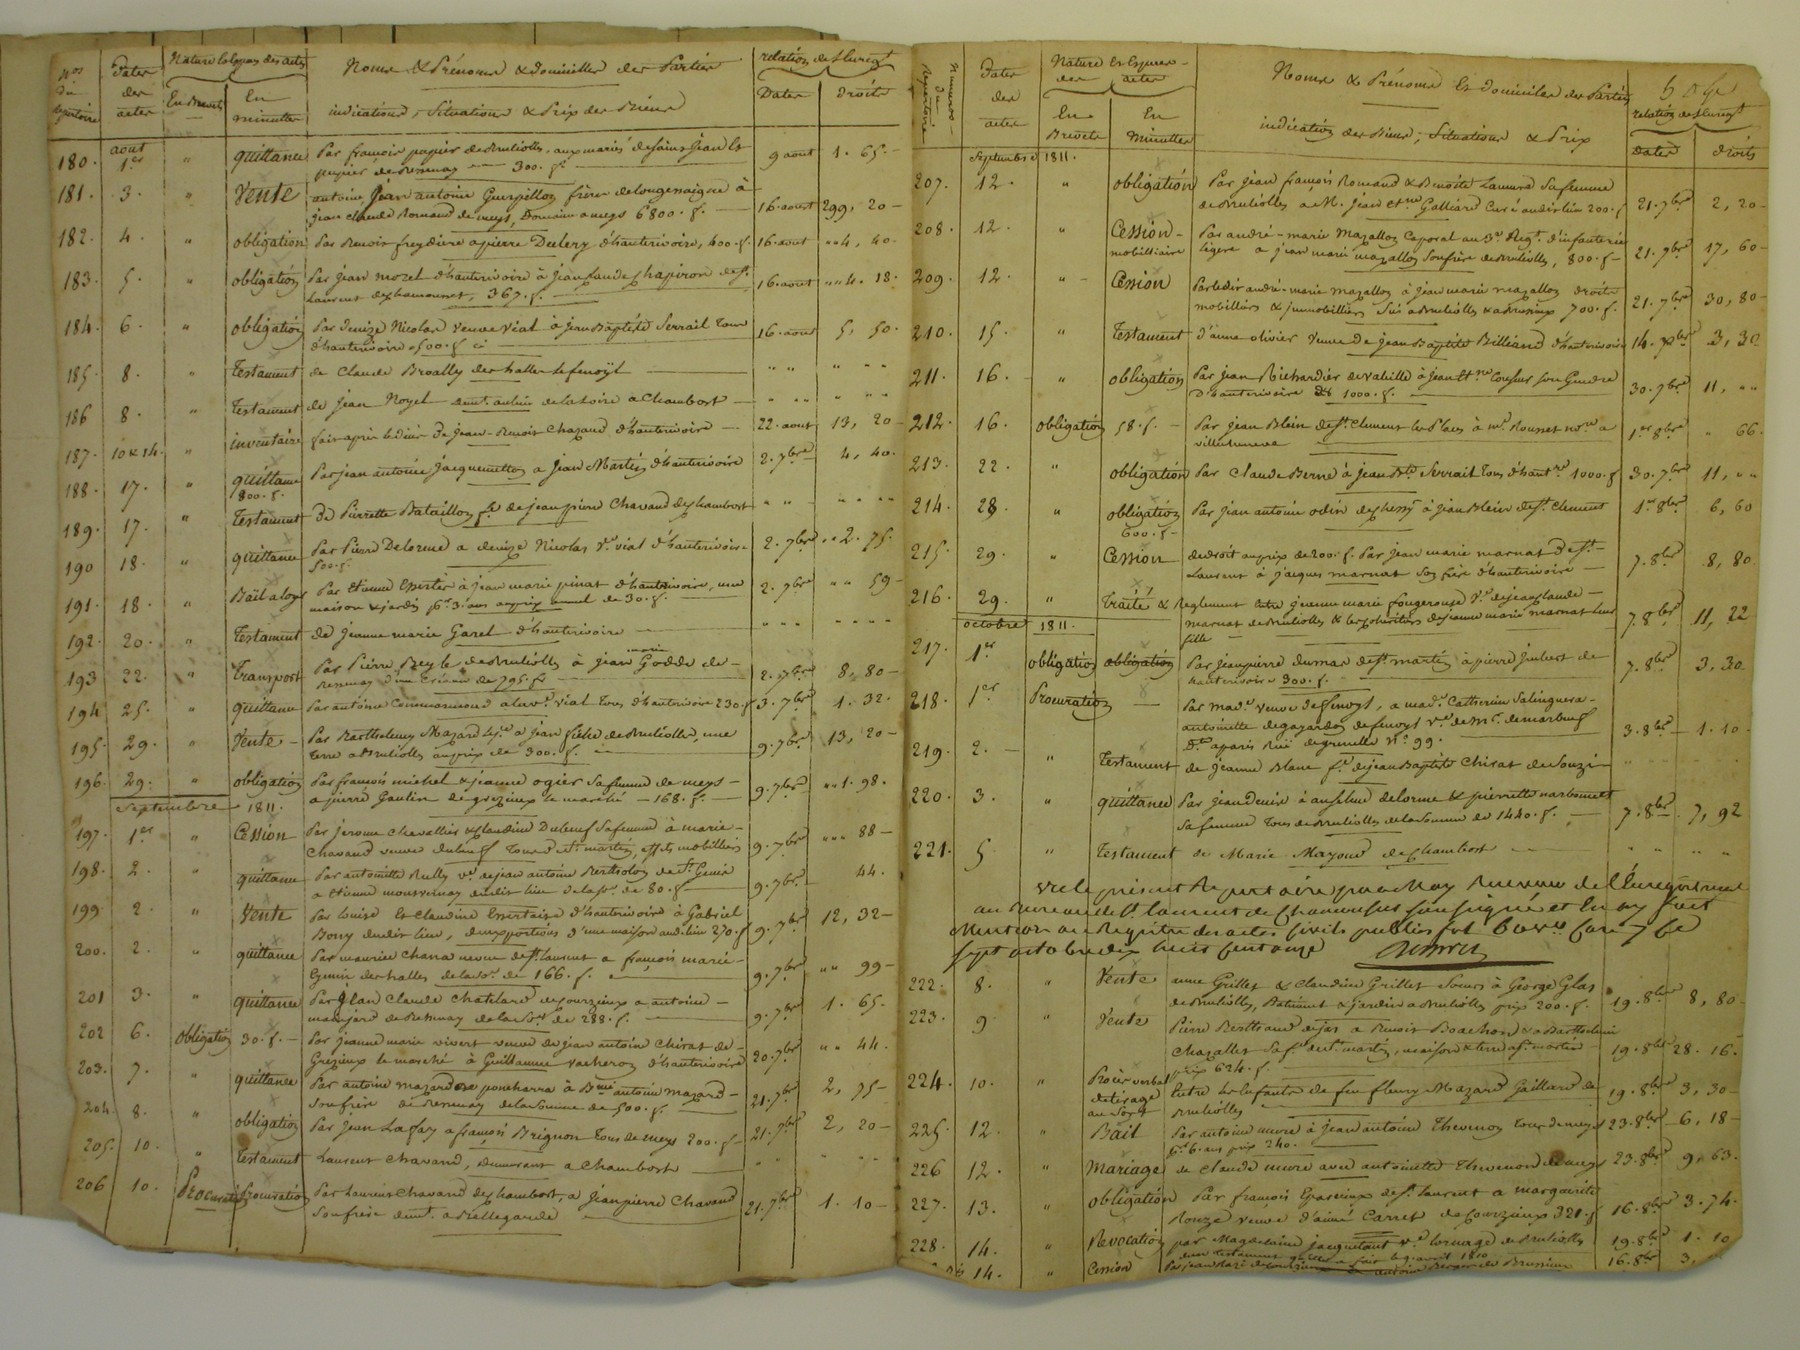 Nos du repertoire
Dates des actes
Nature des actes
En Brevets
En minuttes
Noms & Prénoms & domicilles des Parties
indications, Situations & Prix des Biens
relation de
Dates
droits
aout
180. 1er " quittance Par françois papier de Brulliolles, aux mariés
papier de 300. f. 9 aout 1. 65.
181. 3. " Vente antoine, Jean antoine Guerpillon frères de longessaigne à
jean claude Romand de meys, Domaine a meys 6800. f. 16. aout 299, 20
182. 4. " obligation Par Benoit freydiere a pierre Dulery d'hauterivoire, 400. f. 16. aout " " 4, 40.
183. 5. " obligation Par Jean mozel d'hauterivoire à jean claude Chapiron de St
Laurent de chamousset, 367. f. 16. aout " " 4. 18.
184. 6. " obligation Par Denize Nicolas veuve Vial à Jean Baptiste Serrail tous
d'hauterivoire 500. f. 16. aout 5, 50.
185. 8. " Testament de Claude Broally des halles le fenoÿl " " " " "
186 8. " Testament de Jean Noyel a Chambost " " " " "
187. 10 & 14. " inventaire fait après le decès de Jean-Benoit Chazaud d'hauterivoire 22. aout 13, 20
188. 17. " quittance Par jean antoine Jacquemetton a Jean Martin d'hauterivoire 2. 7bre 4, 40.
800. f.
189. 17. " Testament De Pierrette Bataillon fe de jean pierre Chavand de Chambost " " " " " "
190 18. " quittance Par Pierre Delorme a denize Nicolas Ve vial d'hauterivoire 2. 7bre " 2. 75.
500. f.
191. 18. " Bail a loyer Par Etienne Essertier à jean marie pinat d'hauterivoire, une
maison & jardin pr 3. ans au prix annuel de 30. f. 2. 7bre " " 59
192. 20. " Testament de jeanne marie Garel d'hauterivoire " " " " " " "
193 22. " Transport Par Pierre Reyle de Brulliolles à jean marie Godde de
d'une créance de 795. f. 2. 7bre 8, 80
194 25. " quittance Par antoine a la ve Vial tous d'hauterivoire 230. f 3. 7bre 1. 32.
195. 29. " Vente Par Barthelemy Mazard a jean de Brulliolles, une
terre a Brulliolles au prix de 300. f. 9. 7bre 13, 20
196. 29. " obligation Par françois michel & jeanne ogier sa femme de meys
a pierre Goutin de grezieux le marché 168. f. 9. 7bre " " 1. 98.
Septembre 1811.
197. 1er " Cession Par jerome chevallier & claudine Dubeuf sa femme à marie
Chavand veuve dubeuf tous de st martin, effets mobilliers 9. 7bre " " 88
198. 2. " quittance Par antoinette Rully Ve de jean antoine Bertholon de St Genis
a Etienne dudit lieu de la so. de 80. f. 9. 7bre 44.
199 2. " Vente Par Louise & Claudine Essertaise d'hauterivoire à Gabriel
Bony dudit lieu, deux portions d'une maison audit lieu 270. f 9. 7bre 12, 32
200. 2. " quittance Par maurice Charavi de st Laurent a françois marie
Genin des halles de la so. de 166. f. 9. 7bre " " 99
201 3. " quittance Par jean Claude Chatelard de Courzieux a antoine
de la So. de 288. f. 9. 7bre 1. 65.
202 6. obligation 30. f. Par jeanne marie vivert veuve de jean antoine Chirat de
Grezieux le marché à Guillaume Vacheron d'hauterivoire 20. 7bre " " 44.
203. 7. " quittance Par antoine mazard de poncharra à antoine mazard
son frère de de la Somme de 500. f. 21. 7bre 2, 75
204. 8. " obligation Par Jean Lafay a françois Brignon tous de meys 200. f 21. 7bre 2, 20
205. 10. " Testament Laurent Chavand, demeurant a Chambost " " " " "
206 10. Procuration Procuration Par Laurent Chavand de Chambost, a Jean pierre Chavand
Son frère demt a Bellegarde 21. 7bre 1. 10
Numeros du Repertoire
Dates des actes
Nature & Especes des actes
En Brevets
En Minuttes
Noms & Prénoms & domiciles des Parties
indication des Biens, Situations & Prix
relation de
Dates
droits
Septembre 1811.
207. 12. " obligation Par Jean françois Romand & Benoite Lamure Sa femme
de Brulliolles a M. Jean etne Galliard Curé audit lieu 200. f 21. 7bre 2, 20
208. 12. " Cession Par andré-marie Mazallon Caporal au 3e Regt d'infanterie
mobilliaire légère a jean marie mazallon son frère de Brulliolles, 800. f 21. 7bre 17, 60
209. 12. " Cession Par ledit andré-marie Mazallon à jean marie mazallon droits
mobilliers & jmmobilliers Sis a Brulliolles & a Brussieux 700. f. 21. 7bre 30, 80
210. 15. " Testament d'anne olivier veuve de jean Baptiste Billiard d'hauterivoire 14. Xbre 3, 30
211. 16. " obligation Par Jean Richardier de Valeille à jean Son Gendre
D'hauterivoire de 1000. f. 30. 7bre 11, " "
212. 16. obligation 58. f. Par Jean Blein de st Clement les Places à mr Rousset nore a
villechenève 1er 8bre " 66.
213. 22. " obligation Par Claude Berne à jean Bte Serrail tous d'hautre 1000. f 30. 7bre 11, " "
214. 28. " obligation Par Jean antoine odin de Chessy à jean Blein de st Clement 1er 8bre 6, 60
600. f.
215. 29. " Cession de droit au prix de 200. f. Par jean marie marnat de st
Laurent à jacques marnat Son frère d'hauterivoire 7. 8bre 8, 80
216. 29. " Traité & Reglement Entre jeanne marie fougerouse Ve de jean claude
marnat de Brulliolles & les héritiers de jeanne marie marnat leur
fille 7. 8bre 11, 22
octobre 1811.
217. 1er obligation obligation Par jean pierre dumas de st martin à pierre jmbert de
hauterivoire 300. f. 7. 8bre 3, 30.
218. 1er Procuration Par made veuve de fenoyl, a made Catherine Salinguera
antoinette de gazardon de fenoyl ve de mr de marbeuf
a paris Rue de grenelle no 99. 3. 8bre 1. 10.
219. 2. " Testament de Jeanne Blanc fe de jean Baptiste Chirat de Souzi
220. 3. " quittance Par jean denis à anselme delorme & pierrette narbonnet
Sa femme tous de Brulliolles de la somme de 1440. f. 7. 8bre 7, 92
221. 5 " Testament de Marie Mayoud de Chambost " " " "
Vu le présent Repertoire par Moy Receveur de l'Enregistrement
au Bureau de St laurent de Chamousset soussigné et En ay fait
Mention au Registre des actes Civils publics fol
sept octobre dix huit cent onze
222. 8. " Vente anne Grillet & Claudine Grillet Sœurs à George Glas
de Brulliolles, Batiment & jardin a Brulliolles prix 200. f. 19. 8bre 8, 80
223. 9 " Vente Pierre Berthraud de jas a Benoit Bouchon & a Barthelemie
Chazalles Sa fe de st martin, maison & terre a st martin 19. 8bre 28. 16.
prix 624. f.
224. 10. " Procès verbal Entre les Enfants de feu fleury Mazard Gaillard de
de tirage Brulliolles 19. 8bre 3, 30
au Sort
225. 12. " Bail Par antoine mure à jean antoine Thevenon tous de meys 23. 8bre 6, 18
pr 6. ans prix 240.
226 12. " Mariage de Claude mure avec antoinette Thevenon de meys 23. 8bre 9. 63.
227. 13. " obligation Par françois de st laurent a marguerite
Rouze veuve d'aimé Carret de Courzieux 321. f 16. 8bre 3. 74.
228. 14. " Revocation par Magdelaine jacquetant ve de Brulliolles 19. 8bre 1. 10
d'un testament fait le 9. avril 1810
14. " Cession Par jean de Brussieux 16. 8bre 3,